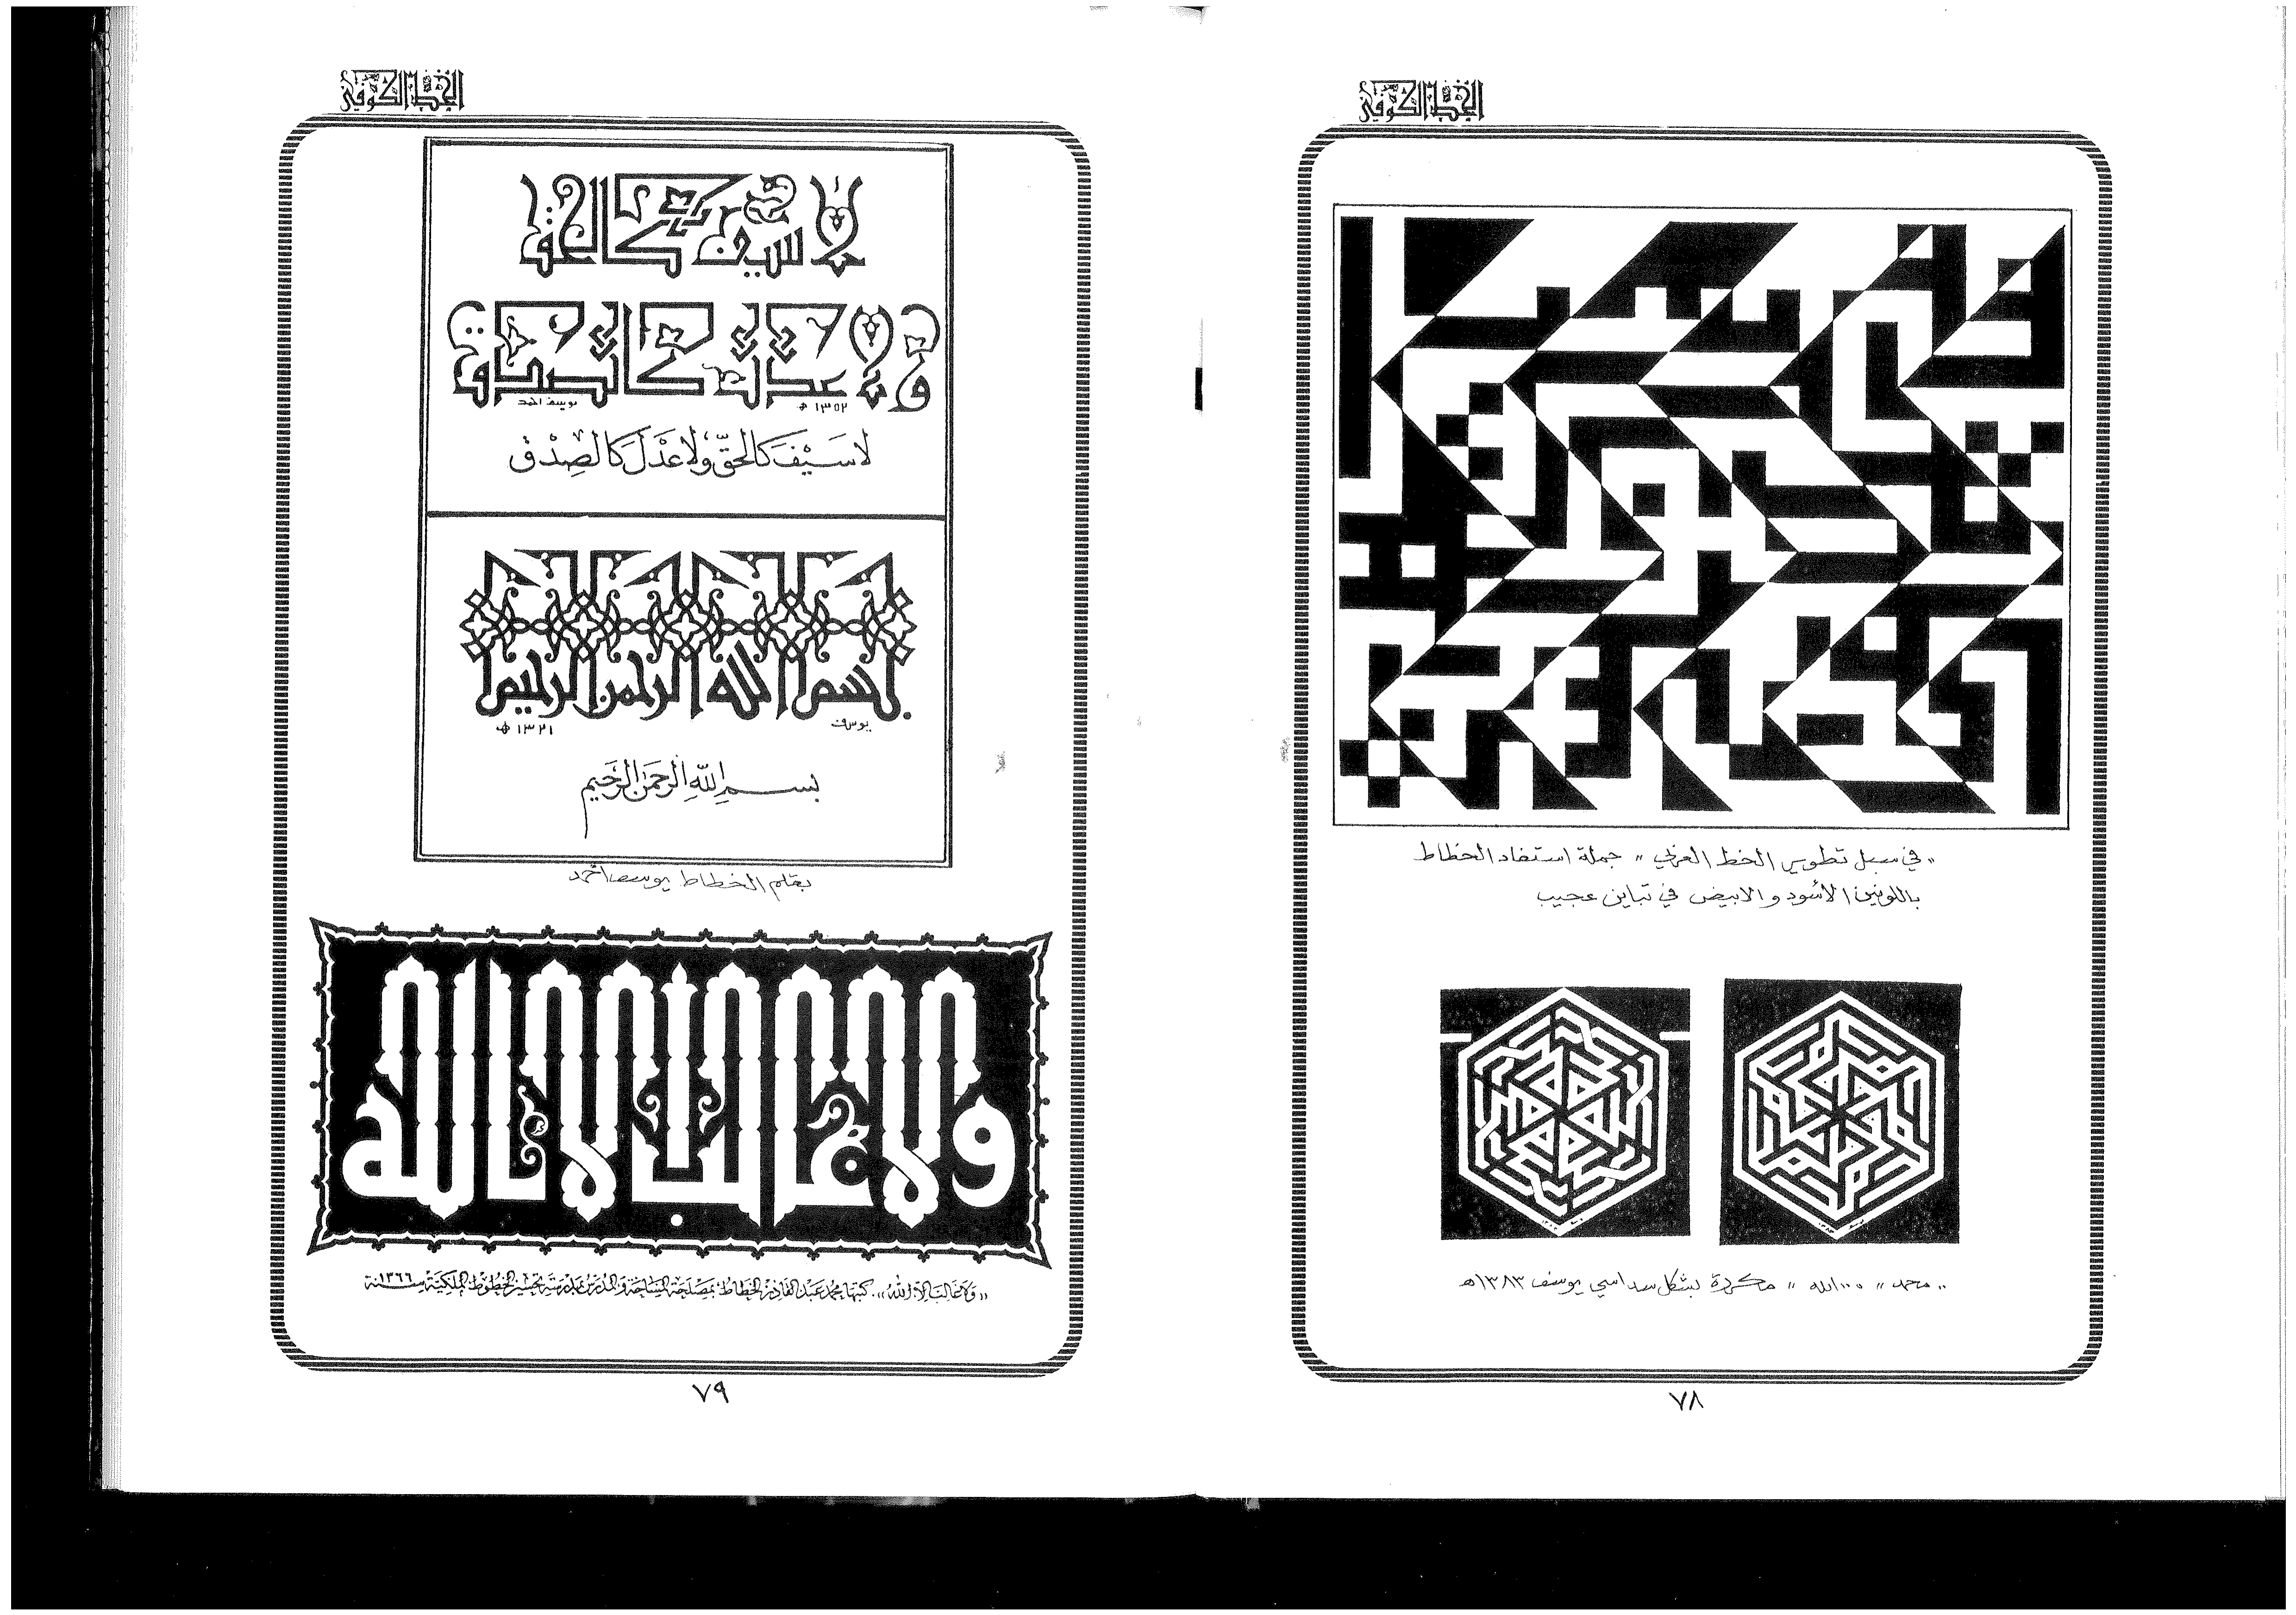 الخط الكوفي
« في سبل تطوير الخط العربي » جملة استفاد الخطاط
باللونين الأسود والابيض في تباين عجيب
« محمد » ، « الله » مكررة بشكل سداسي يوسف ١٣٨٣هـ
٧٨
الخط الكوفي
لا سيف كالحق
ولا عدل كالصدق
١٣٥٢ هـ
يوسف احمد
لَا سَيْفَ كَالحَقّ وَلَا عَدْلَ كَالصِدْق
بسم الله الرحمن الرحيم
يوسف
١٣٢١ هـ
بسمِ اللّهِ الرحمَن الرحَيم
بقلم الخطاط يوسف أحمد
ولا غالب إلا الله
« وَلَا غَالبَ إلا الله » . كتبها محمد عَبد القادر الخطاط بمَصلحَة المسَاحَة وَالمدَرسْ بمدرسَة تحسْين الخطوط الملكيَة سنة ١٣٦٦
٧٩